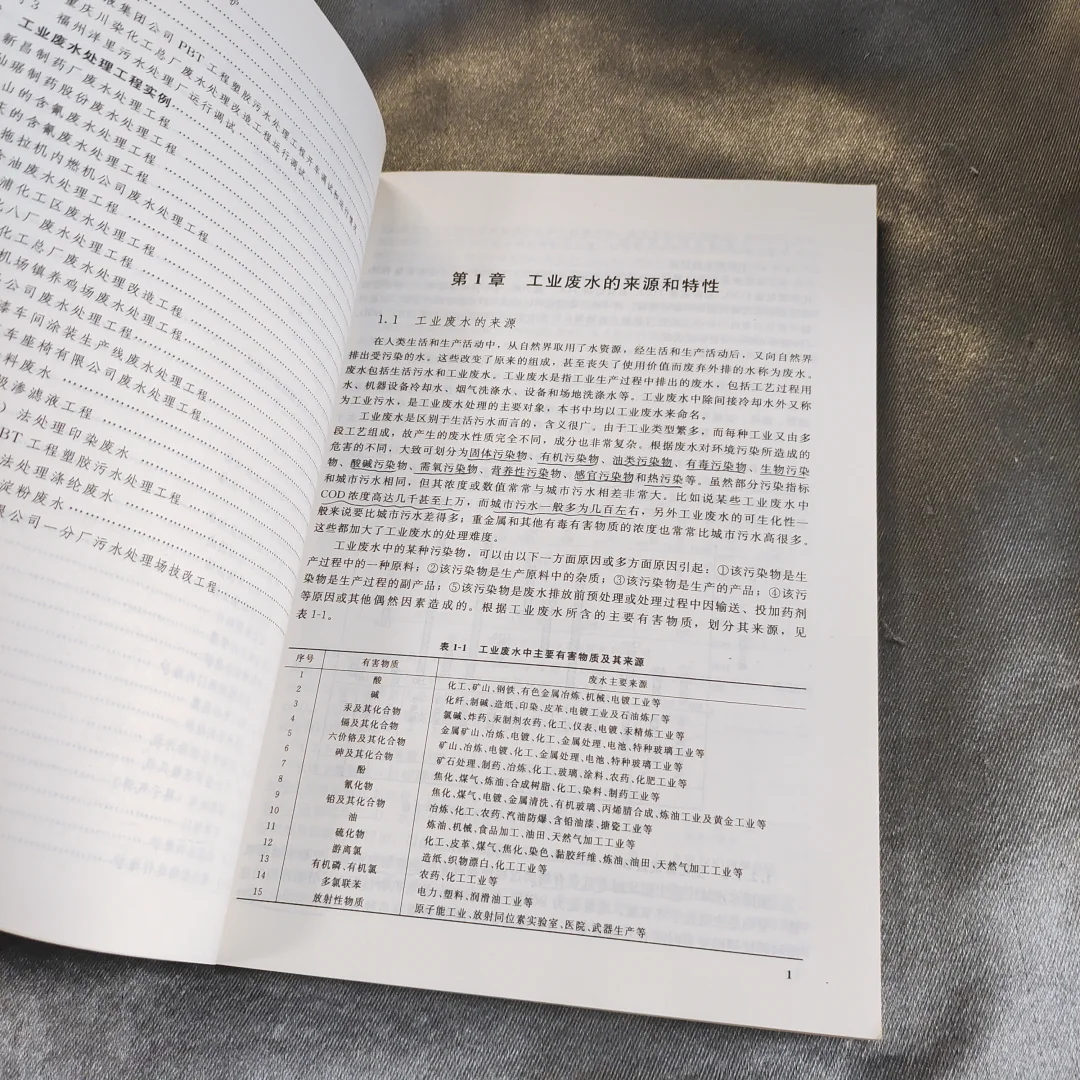 液集团公司PBT工程塑胶污水处理工程开车调试和运行情况
重庆川染化工总厂废水处理改造工程运行调试
3 福州洋里污水处理厂运行调试
工业废水处理工程实例
新昌制药厂废水处理工程
仙琚制药股份废水处理工程
山的含氰废水处理工程
的含氰废水处理工程
拖拉机内燃机公司废水处理工程
含油废水处理工程
浦化工区废水处理工程
八厂废水处理工程
化工总厂废水处理改造工程
机场镇养鸡场废水处理工程
公司废水处理工程
漆车间涂装生产线废水处理工程
车座椅有限公司废水处理工程
料废水
圾渗滤液工程
）法处理印染废水
PBT工程塑胶污水处理工程
法处理涤纶废水
淀粉废水
限公司一分厂污水处理场技改工程
第1章 工业废水的来源和特性
1.1 工业废水的来源
在人类生活和生产活动中，从自然界取用了水资源，经生活和生产活动后，又向自然界
排出受污染的水。这些改变了原来的组成，甚至丧失了使用价值而废弃外排的水称为废水。
废水包括生活污水和工业废水。工业废水是指工业生产过程中排出的废水，包括工艺过程用
水、机器设备冷却水、烟气洗涤水、设备和场地洗涤水等。工业废水中除间接冷却水外又称
为工业污水，是工业废水处理的主要对象，本书中均以工业废水来命名。
工业废水是区别于生活污水而言的，含义很广。由于工业类型繁多，而每种工业又由多
段工艺组成，故产生的废水性质完全不同，成分也非常复杂。根据废水对环境污染所造成的
危害的不同，大致可划分为固体污染物、有机污染物、油类污染物、有毒污染物、生物污染
物、酸碱污染物、需氧污染物、营养性污染物、感官污染物和热污染等。虽然部分污染指标
和城市污水相同，但其浓度或数值常常与城市污水相差非常大。比如说某些工业废水中
COD浓度高达几千甚至上万，而城市污水一般多为几百左右，另外工业废水的可生化性一
般来说要比城市污水差得多；重金属和其他有毒有害物质的浓度也常常比城市污水高很多。
这些都加大了工业废水的处理难度。
工业废水中的某种污染物，可以由以下一方面原因或多方面原因引起：①该污染物是生
产过程中的一种原料；②该污染物是生产原料中的杂质；③该污染物是生产的产品；④该污
染物是生产过程的副产品；⑤该污染物是废水排放前预处理或处理过程中因输送、投加药剂
等原因或其他偶然因素造成的。根据工业废水所含的主要有害物质，划分其来源，见
表1-1。
表1-1 工业废水中主要有害物质及其来源
序号 有害物质 废水主要来源
1 酸 化工、矿山、钢铁、有色金属冶炼、机械、电镀工业等
2 碱 化纤、制碱、造纸、印染、皮革、电镀工业及石油炼厂等
3 汞及其化合物 氯碱、炸药、汞制剂农药、化工、仪表、电镀、汞精炼工业等
4 镉及其化合物 金属矿山、冶炼、电镀、化工、金属处理、电池、特种玻璃工业等
5 六价铬及其化合物 矿山、冶炼、电镀、化工、金属处理、电池、特种玻璃工业等
6 砷及其化合物 矿石处理、制药、冶炼、化工、玻璃、涂料、农药、化肥工业等
7 酚 焦化、煤气、炼油、合成树脂、化工、染料、制药工业等
8 氰化物 焦化、煤气、电镀、金属清洗、有机玻璃、丙烯腈合成、炼油工业及黄金工业等
9 铅及其化合物 冶炼、化工、农药、汽油防爆、含铅油漆、搪瓷工业等
10 油 炼油、机械、食品加工、油田、天然气加工工业等
11 硫化物 化工、皮革、煤气、焦化、染色、黏胶纤维、炼油、油田、天然气加工工业等
12 游离氯 造纸、织物漂白、化工工业等
13 有机磷、有机氯 农药、化工工业等
14 多氯联苯 电力、塑料、润滑油工业等
15 放射性物质 原子能工业、放射同位素实验室、医院、武器生产等
1